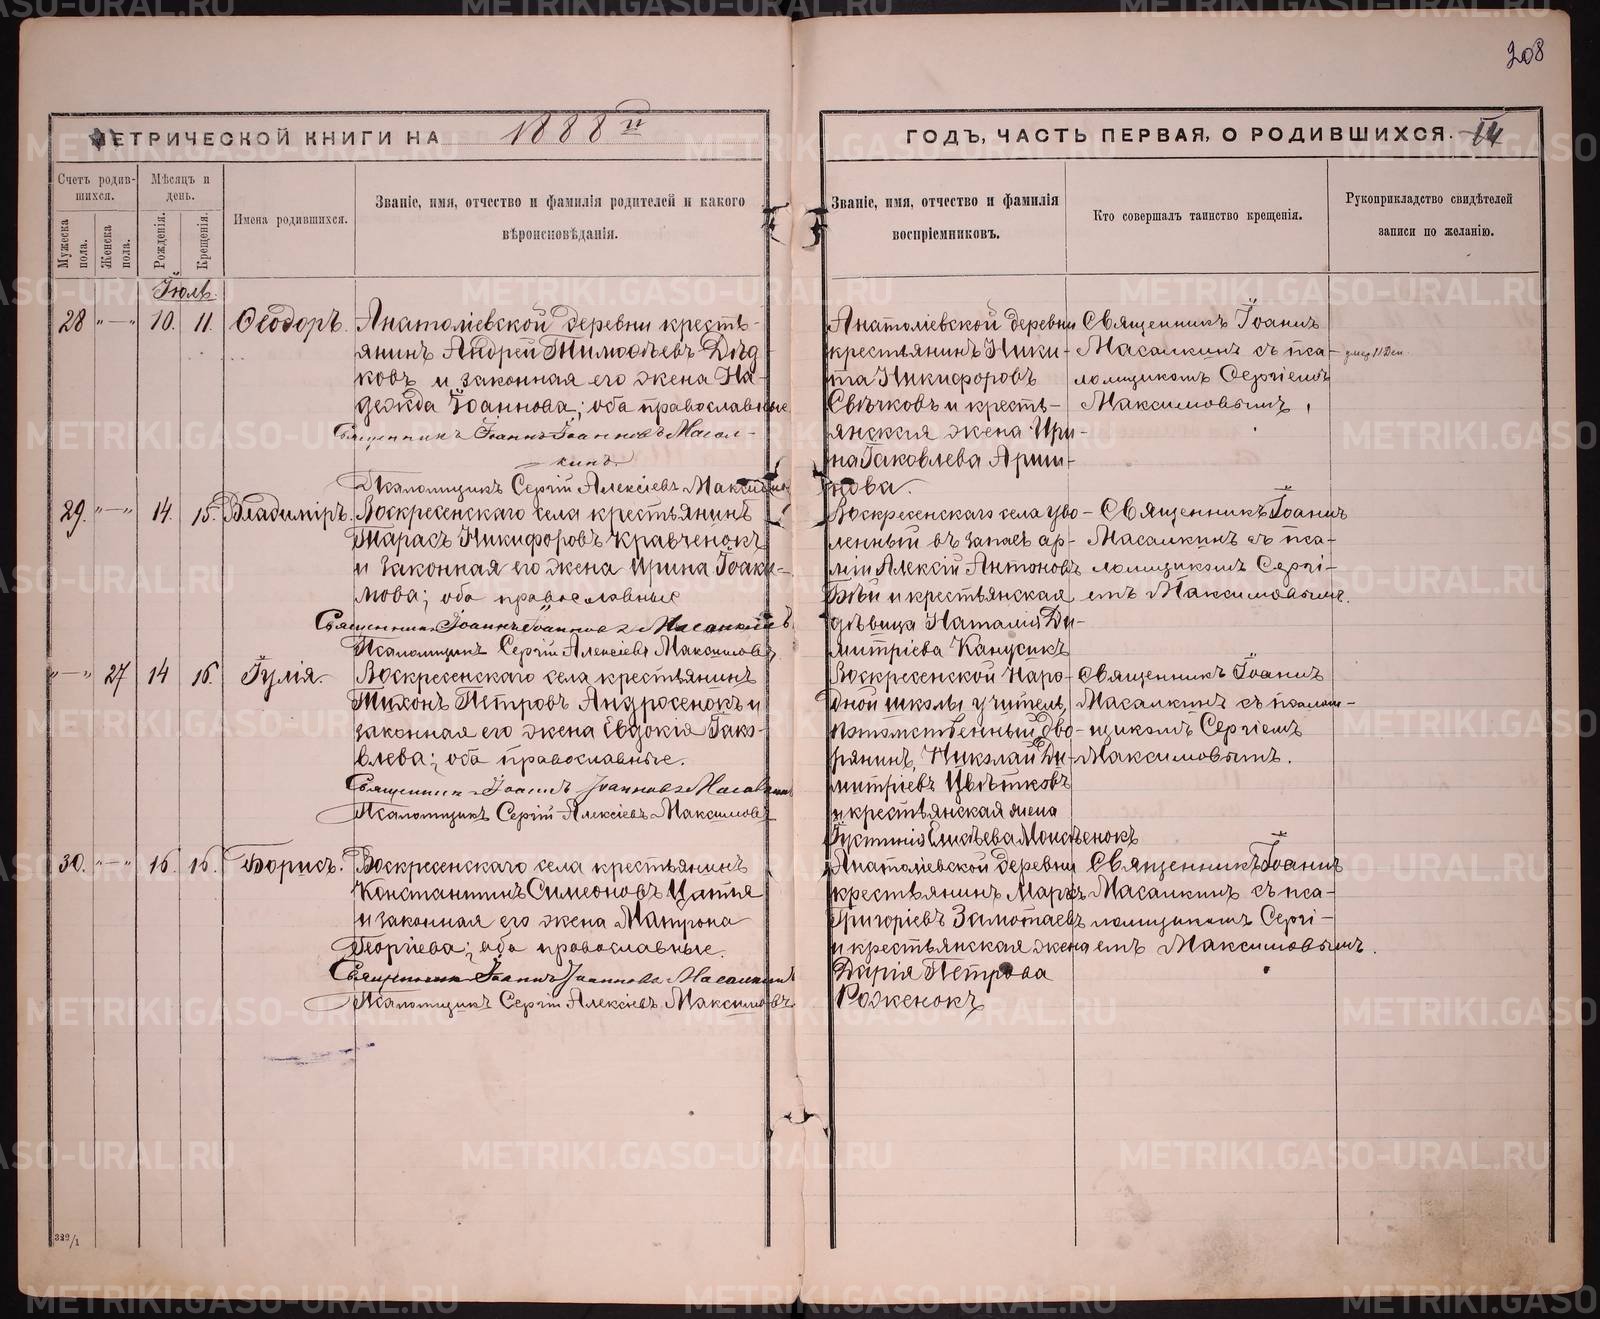 208
МЕТРИЧЕСКОЙ КНИГИ НА 1888й
ГОДЪ, ЧАСТЬ ПЕРВАЯ, О РОДИВШИХСЯ. 14
Счетъ родив-
шихся.
Мужеска пола.
Женска пола.
Мѣсяцъ и
день.
Рожденія.
Крещенія.
Имена родившихся.
Званіе, имя, отчество и фамилія родителей и какого
вѣроисповѣданія.
Званіе, имя, отчество и фамилія
воспріемниковъ.
Кто совершалъ таинство крещенія.
Рукоприкладство свидѣтелей
записи по желанію.
Іюль.
28 "—" 10. 11. Ѳеодоръ.
Анатоліевской деревни кресть-
янинъ Андрей Тимоѳѣевъ Дѣд-
ковъ и законная его жена На-
дежда Іоаннова; оба православные
Священникъ Іоаннъ Іоанновъ Масал-
кинъ
Псаломщикъ Сергій Алексіевъ Максимовъ
Анатоліевской деревни
крестьянинъ Ники-
та Никифоровъ
Свѣчковъ и кресть-
янская жена Ири-
на Іаковлева Арши-
нова.
Священникъ Іоаннъ
Масалкинъ съ пса-
ломщикомъ Сергіемъ
Максимовымъ.
умер 11 Дек.
29. "—" 14. 15. Владиміръ.
Воскресенскаго села крестьянинъ
Тарасъ Никифоровъ Кравченокъ
и законная его жена Ирина Іоаки-
мова; оба православные
Священникъ Іоаннъ Іоанновъ Масалкинъ
Псаломщикъ Сергій Алексіевъ Максимовъ
Воскресенскаго села уво-
ленный въ запасъ ар-
міи Алексій Антоновъ
Бѣй и крестьянская
дѣвица Наталія Ди-
митріева Канусикъ
Священникъ Іоаннъ
Масалкинъ съ пса-
ломщикомъ Сергі-
емъ Максимовымъ.
"—" 27 14 16. Іулія.
Воскресенскаго села крестьянинъ
Тихонъ Петровъ Андросенокъ и
законная его жена Евдокія Іако-
влева; оба православные.
Священникъ Іоаннъ Іоанновъ Масалкинъ
Псаломщикъ Сергій Алексіевъ Максимовъ
Воскресенской Наро-
дной школы учитель,
потомственный дво-
рянинъ, Николай Ди-
митріевъ Цвѣтковъ
и крестьянская жена
Іустинія Елисѣева Моисѣенокъ
Священникъ Іоаннъ
Масалкинъ съ псалом-
щикомъ Сергіемъ
Максимовымъ.
30. "—" 16. 16. Борисъ.
Воскресенскаго села крестьянинъ
Константинъ Симеоновъ Цатія
и законная его жена Матрона
Георгіева; оба православные.
Священникъ Іоаннъ Іоанновъ Масалкинъ
Псаломщикъ Сергій Алексіевъ Максимовъ
Анатоліевской деревни
крестьянинъ Маркъ
Григоріевъ Замотаевъ
и крестьянская жена
Дарія Петрова
Роженокъ
Священникъ Іоаннъ
Масалкинъ съ пса-
ломщикомъ Сергі-
емъ Максимовымъ.
322/1
METRIKI.GASO-URAL.RU